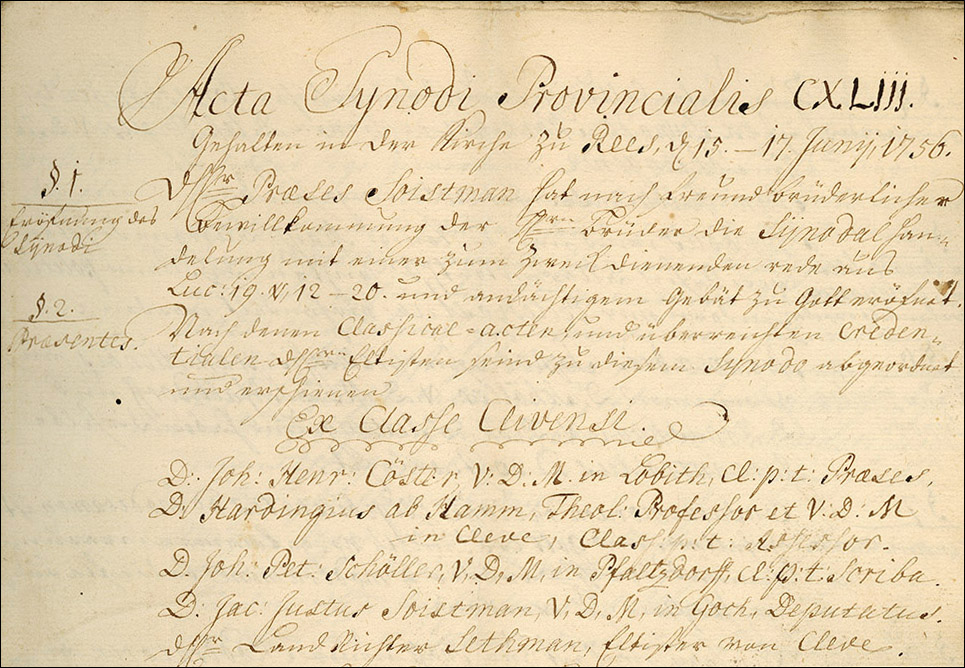 Acta Synodi Provincialis CXLIII.
Gehalten in der Kirche zu Rees, d 15. – 17. Junij, 1756.
§. 1.
Eröfnung des
Synodi
Præses Soistman hat nach freundbrüderlicher
Bewillkommung der Brüder die Synodalhan=
delung mit einer zum zweck dienenden rede aus
Luc: 19. V, 12 – 20. und andächtigem Gebät zu Gott eröfnet.
§. 2.
Præsentes.
Nach denen Classical=acten, und überreichten Creden=
tialen Eltisten seind zu diesem Synodo abgeordnet
und erschienen
Ex Classe Clivensi.
D: Joh: Henr: Cöster, V: D: M. in Lobith, Cl: p: t: Præses,
D: Hardingius ab Hamm, Theol: Professor et V: D: M
in Cleve, Class: p: t: Assessor.
D. Joh: Pet: Schöller, V, D, M, in Pfaltzdorff, Cl: p: t: Scriba.
D: Jac: Justus Soistman, V, D, M, in Goch, Deputatus.
Land Richter Lethman, Eltister von Cleve.